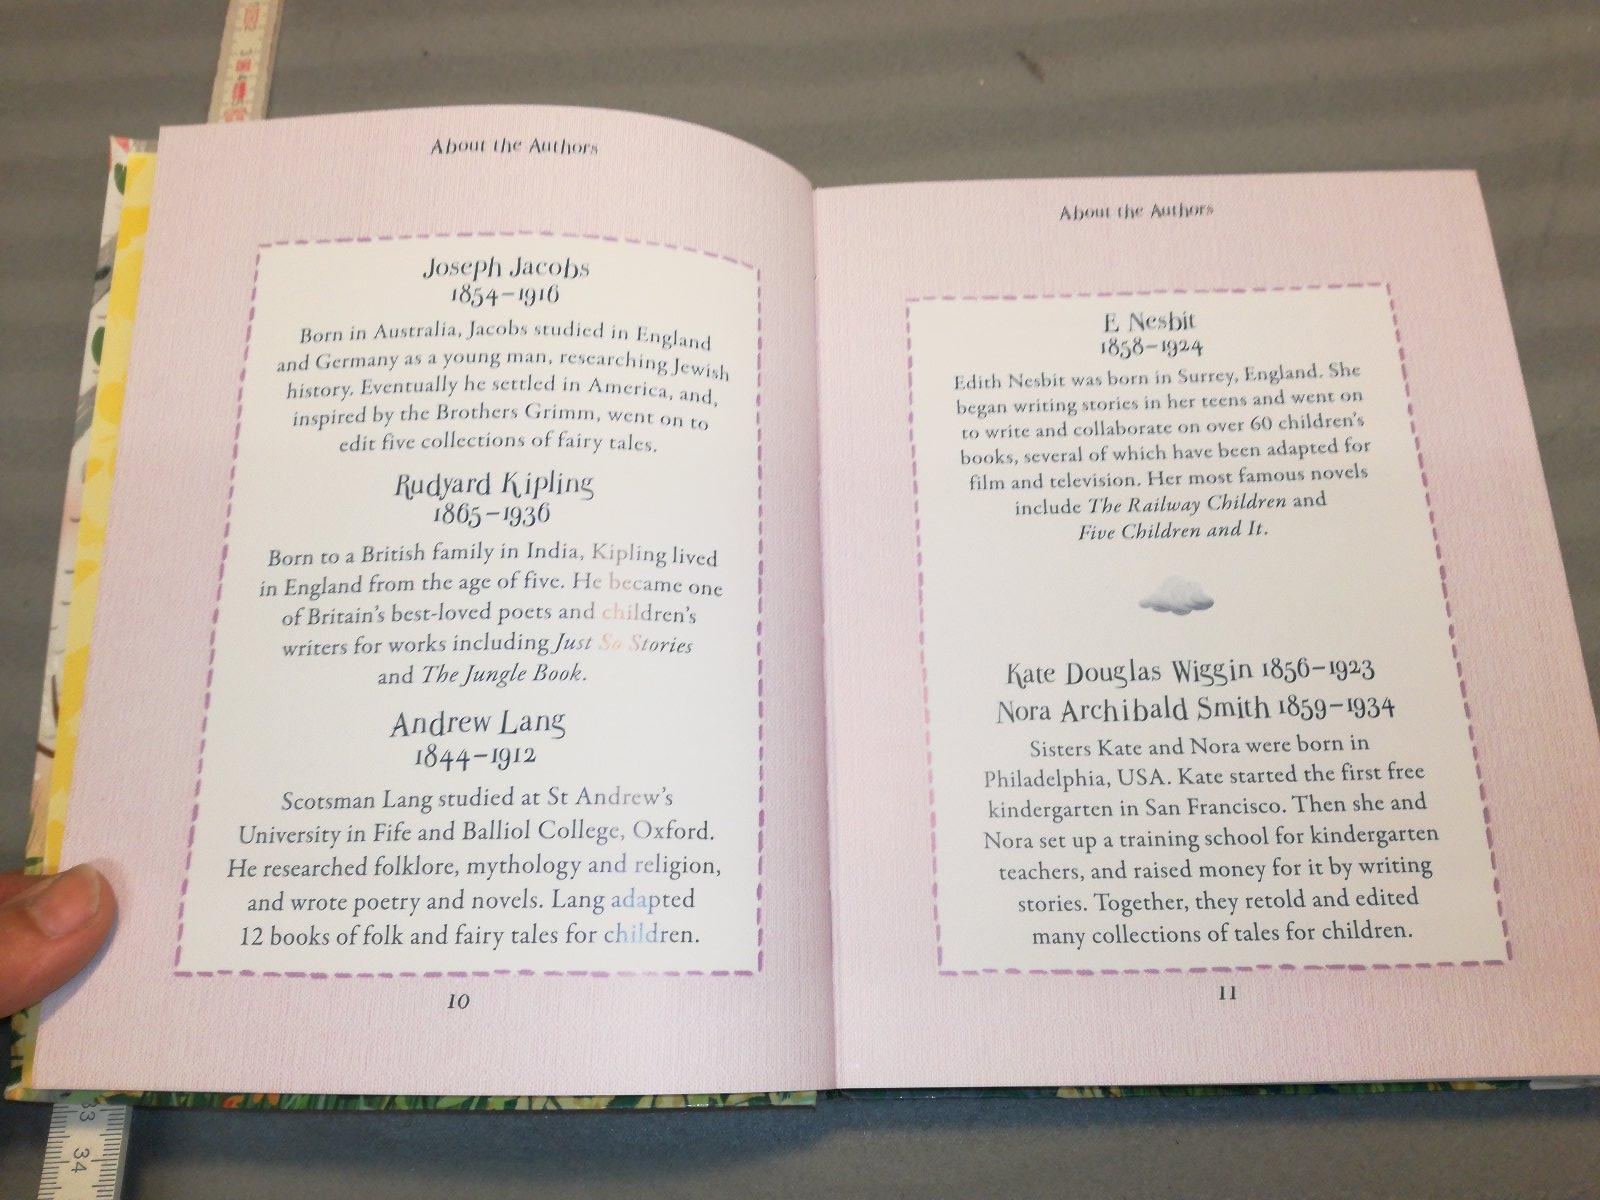 About the Authors
Joseph Jacobs
1854–1916
Born in Australia, Jacobs studied in England
and Germany as a young man, researching Jewish
history. Eventually he settled in America, and,
inspired by the Brothers Grimm, went on to
edit five collections of fairy tales.
Rudyard Kipling
1865–1936
Born to a British family in India, Kipling lived
in England from the age of five. He became one
of Britain's best-loved poets and children's
writers for works including Just So Stories
and The Jungle Book.
Andrew Lang
1844–1912
Scotsman Lang studied at St Andrew's
University in Fife and Balliol College, Oxford.
He researched folklore, mythology and religion,
and wrote poetry and novels. Lang adapted
12 books of folk and fairy tales for children.
10
About the Authors
E Nesbit
1858–1924
Edith Nesbit was born in Surrey, England. She
began writing stories in her teens and went on
to write and collaborate on over 60 children's
books, several of which have been adapted for
film and television. Her most famous novels
include The Railway Children and
Five Children and It.
Kate Douglas Wiggin 1856–1923
Nora Archibald Smith 1859–1934
Sisters Kate and Nora were born in
Philadelphia, USA. Kate started the first free
kindergarten in San Francisco. Then she and
Nora set up a training school for kindergarten
teachers, and raised money for it by writing
stories. Together, they retold and edited
many collections of tales for children.
11
33
34